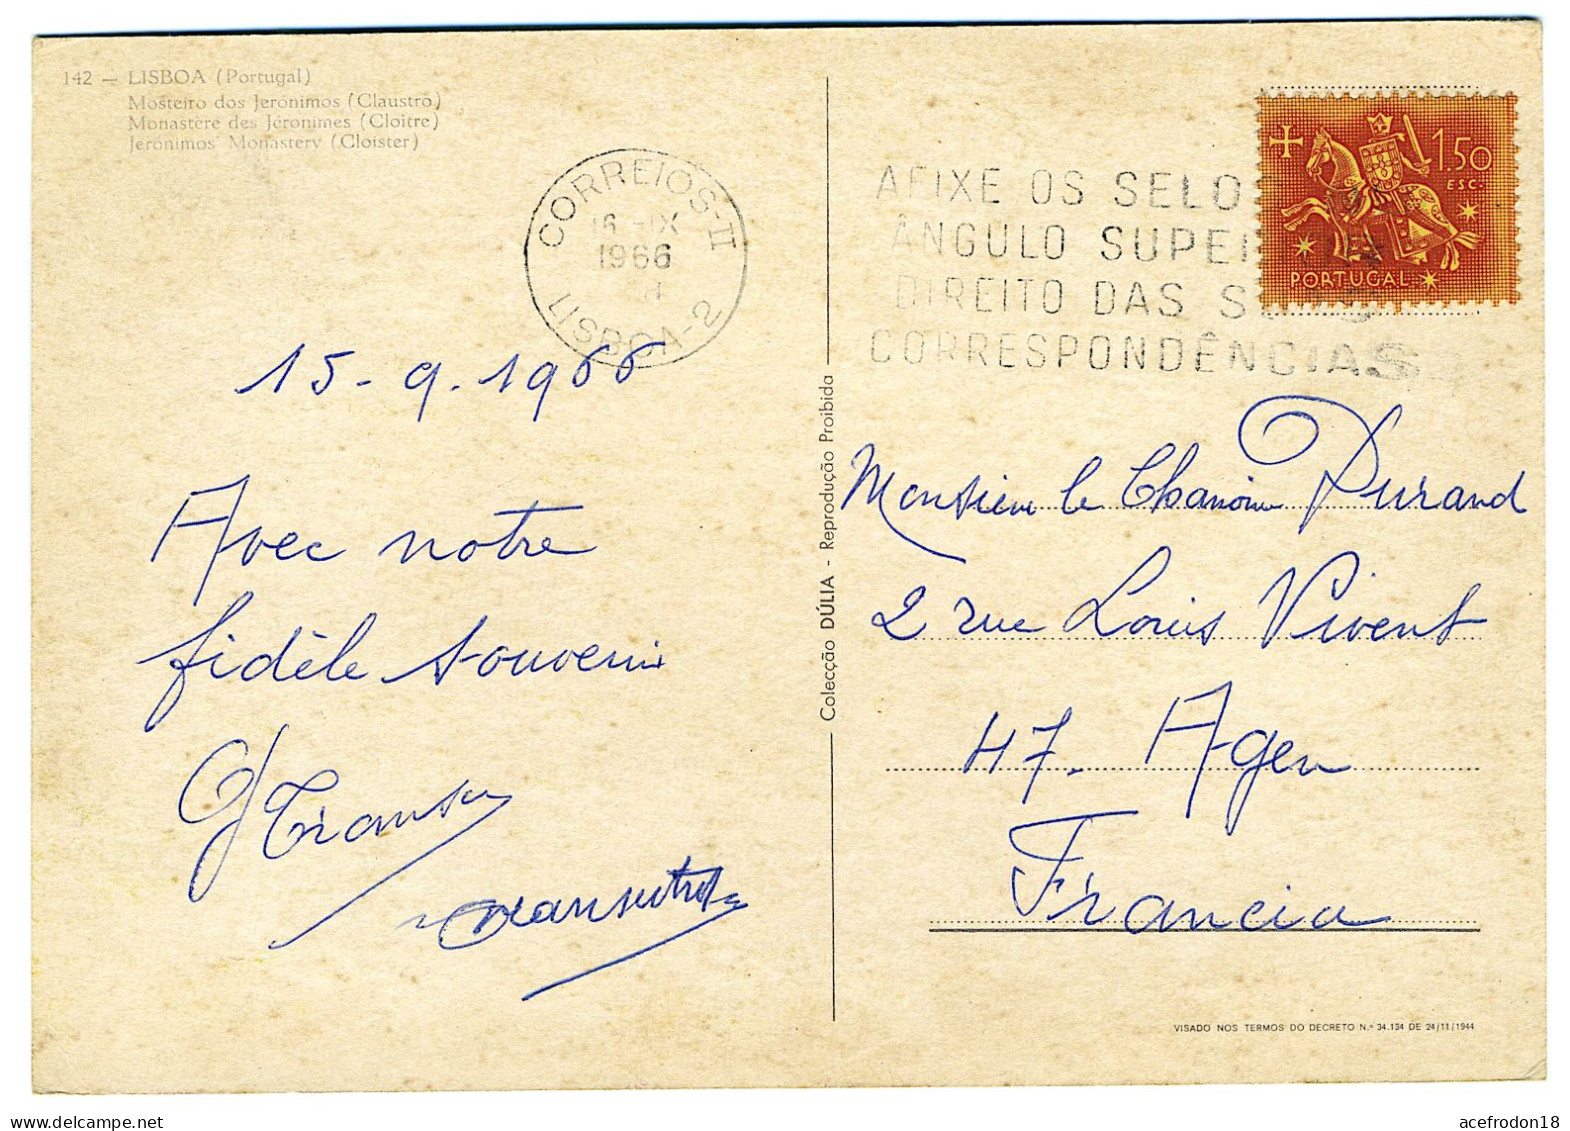 142 — LISBOA (Portugal)
Mosteiro dos Jerónimos (Claustro)
Monastère des Jéronimes (Cloitre)
Jerónimos' Monastery (Cloister)
CORREIOS-II
16 -IX
1966
LISBOA-2
AFIXE OS SELOS
ÂNGULO SUPER
DIREITO DAS S
CORRESPONDÊNCIAS
1$50
ESC.
PORTUGAL
15-9.1966
Avec notre
fidèle souvenir
Colecção DÚLIA - Reprodução Proibida
Monsieur le Chanoine Durand
2 rue Louis Vivent
47. Agen
Francia
VISADO NOS TERMOS DO DECRETO N.º 34.134 DE 24/11/1944
www.delcampe.net
acefrodon18